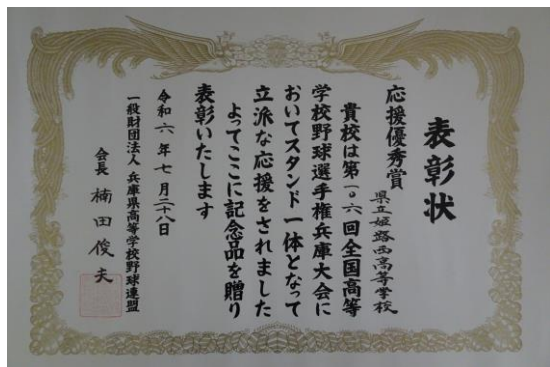 表彰状
応援優秀賞
県立姫路西高等学校
貴校は第一〇六回全国高等
学校野球選手権兵庫大会に
おいてスタンド一体となって
立派な応援をされました
よってここに記念品を贈り
表彰いたします
令和六年七月二十八日
一般財団法人 兵庫県高等学校野球連盟
会長 楠田俊夫